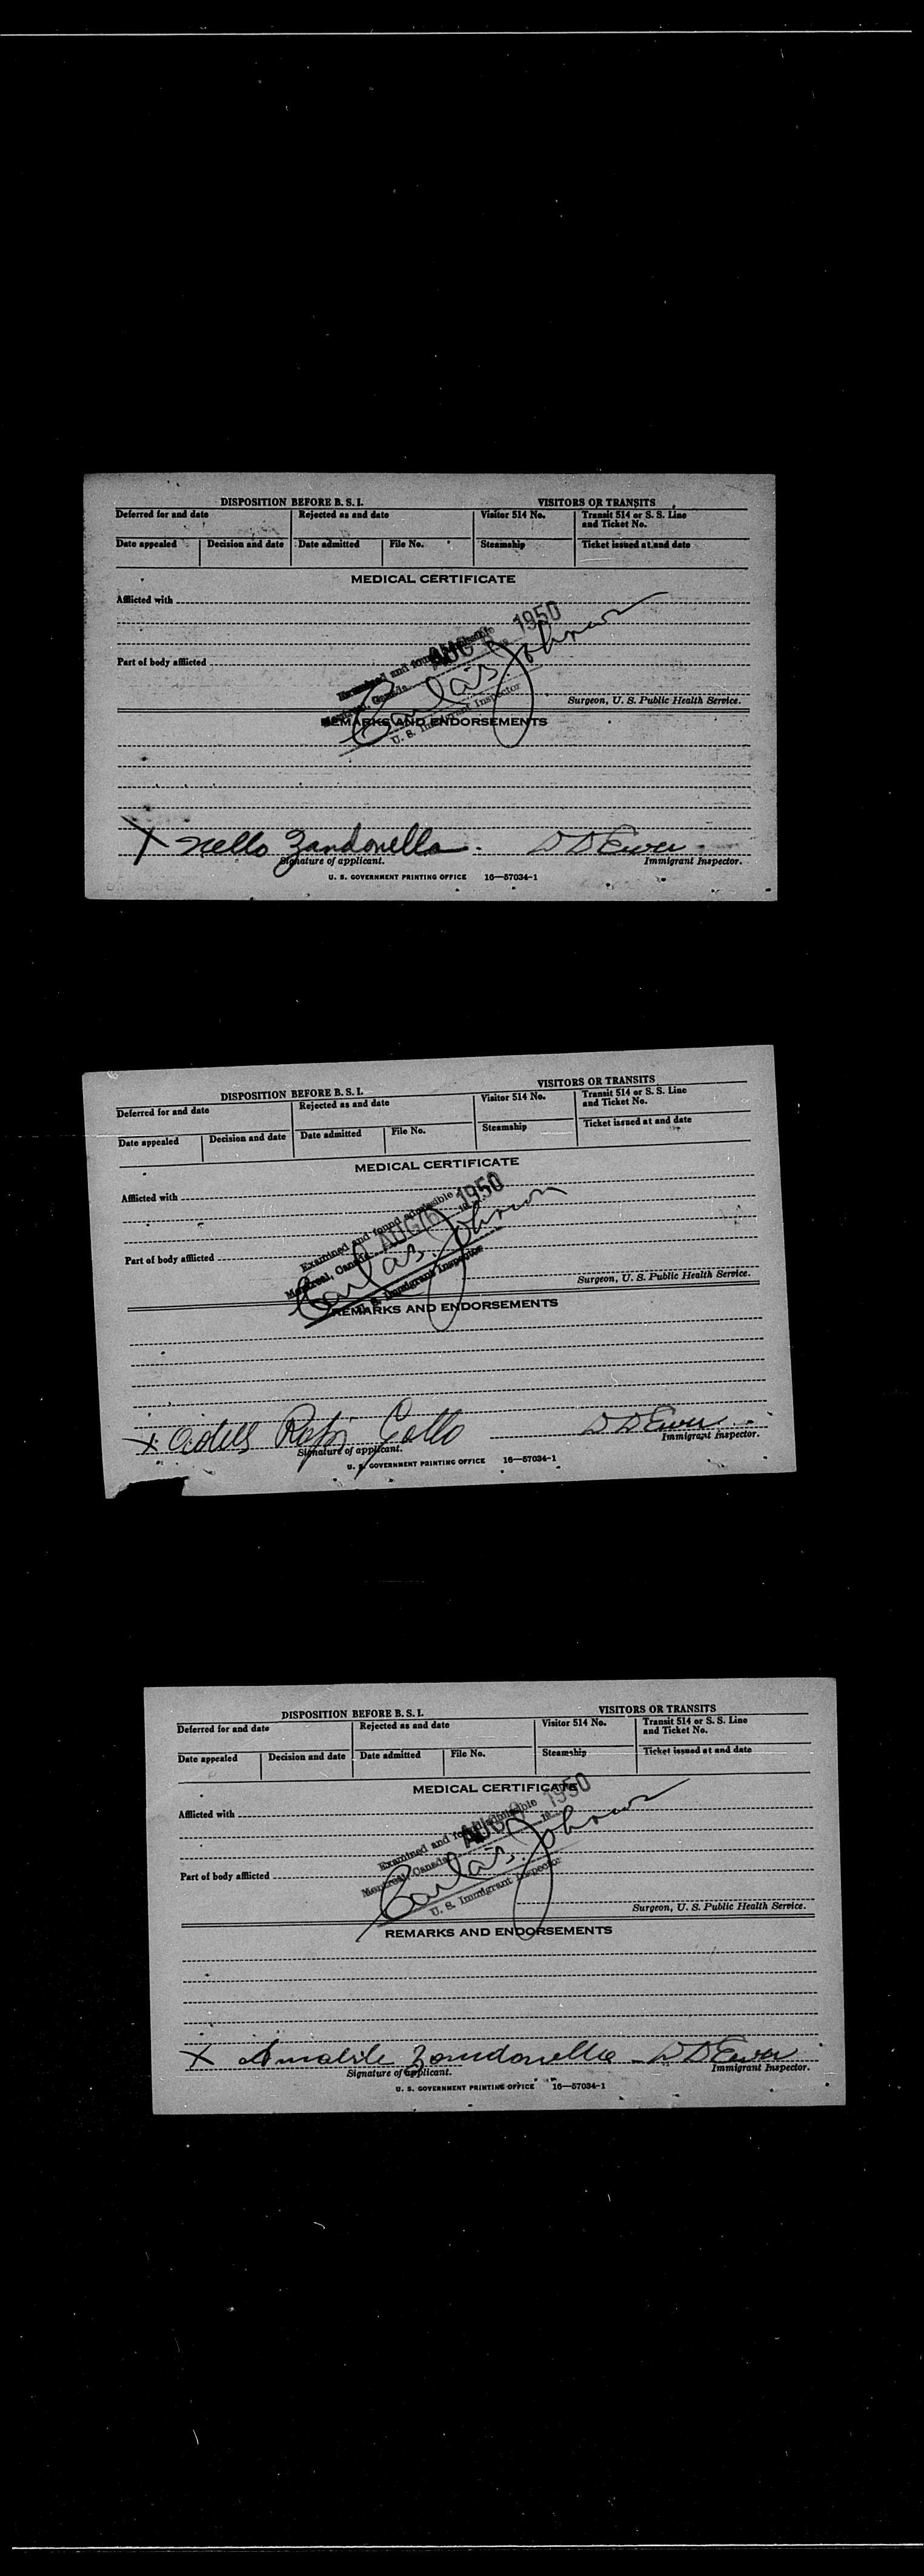 DISPOSITION BEFORE B. S. I. VISITORS OR TRANSITS
Deferred for and date Rejected as and date Visitor 514 No. Transit 514 or S. S. Line and Ticket No.
Date appealed Decision and date Date admitted File No. Steamship Ticket issued at and date
MEDICAL CERTIFICATE
Afflicted with
1950
Part of body afflicted
Examined and found
Montreal, Canada
Carl as. Johnson
U. S. Immigrant Inspector
Surgeon, U. S. Public Health Service.
REMARKS AND ENDORSEMENTS
X Nello Zandonella D D Ewer
Signature of applicant. Immigrant Inspector.
U. S. GOVERNMENT PRINTING OFFICE 16—57034-1
DISPOSITION BEFORE B. S. I. VISITORS OR TRANSITS
Deferred for and date Rejected as and date Visitor 514 No. Transit 514 or S. S. Line and Ticket No.
Date appealed Decision and date Date admitted File No. Steamship Ticket issued at and date
MEDICAL CERTIFICATE
Afflicted with
Examined and found admissible
Montreal, Canada AUG 1950
Part of body afflicted
Carl as. Johnson
U. S. Immigrant Inspector
Surgeon, U. S. Public Health Service.
REMARKS AND ENDORSEMENTS
X Gallo D D Ewer
Signature of applicant. Immigrant Inspector.
U. S. GOVERNMENT PRINTING OFFICE 16—57034-1
DISPOSITION BEFORE B. S. I. VISITORS OR TRANSITS
Deferred for and date Rejected as and date Visitor 514 No. Transit 514 or S. S. Line and Ticket No.
Date appealed Decision and date Date admitted File No. Steamship Ticket issued at and date
MEDICAL CERTIFICATE
Afflicted with
Examined and found admissible
Montreal, Canada AUG 1950
Part of body afflicted
Carl as. Johnson
U. S. Immigrant Inspector
Surgeon, U. S. Public Health Service.
REMARKS AND ENDORSEMENTS
X Amabile Zandonella D D Ewer
Signature of applicant. Immigrant Inspector.
U. S. GOVERNMENT PRINTING OFFICE 16—57034-1